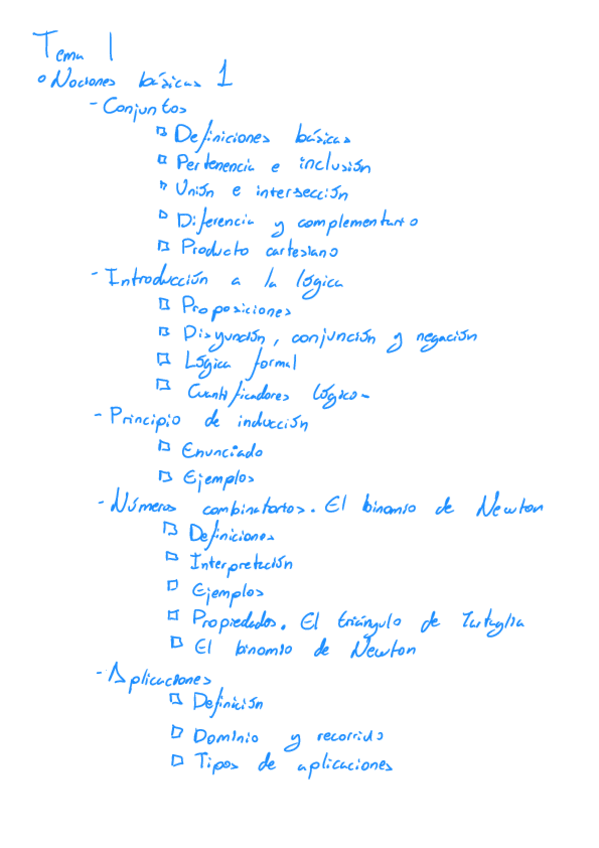 Tema 1
Nociones básicas 1
- Conjuntos
Definiciones básicas
Pertenencia e inclusión
Unión e intersección
Diferencia y complementario
Producto cartesiano
- Introducción a la lógica
Proposiciones
Disyunción, conjunción y negación
Lógica formal
Cuantificadores lógicos
- Principio de inducción
Enunciado
Ejemplos
- Números combinatorios. El binomio de Newton
Definiciones
Interpretación
Ejemplos
Propiedades. El triángulo de Tartaglia
El binomio de Newton
- Aplicaciones
Definición
Dominio y recorrido
Tipos de aplicaciones